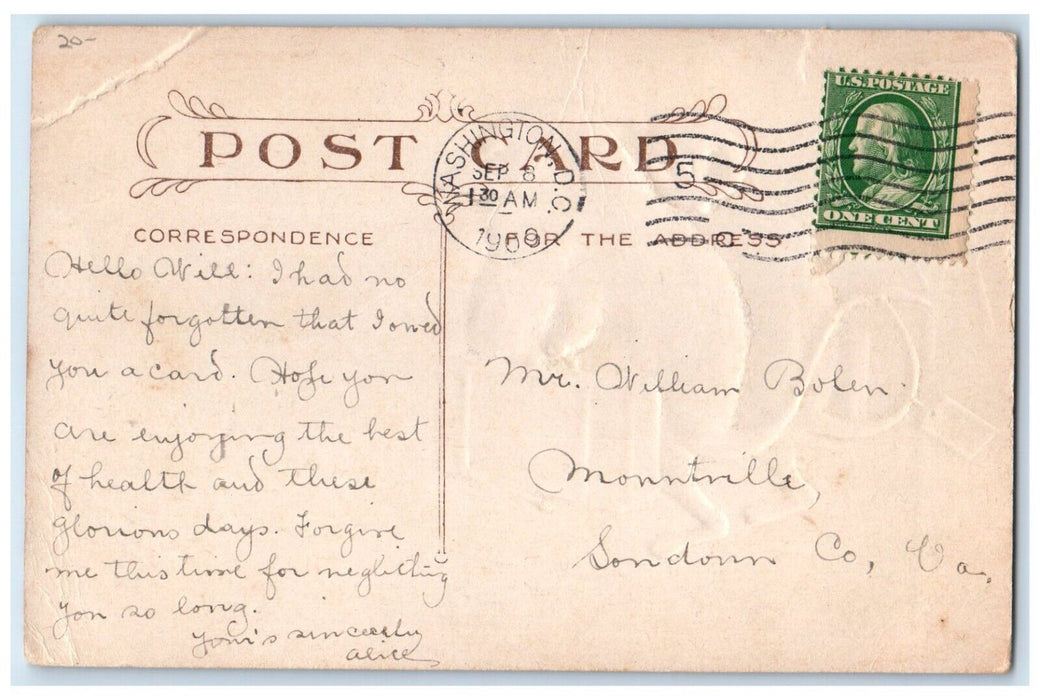 20-
U.S. POSTAGE
ONE CENT
POST CARD
WASHINGTON, D.C.
SEP 8
1 30 AM
1909
5
CORRESPONDENCE
FOR THE ADDRESS
Hello Will: I had no
quite forgotten that I owed
you a card. Hope you
are enjoying the best
of health and these
glorious days. Forgive
me this time for neglecting
you so long.
Your's sincerely
Alice
Mr. William Bolen.
Mountville,
Loudoun Co, Va.